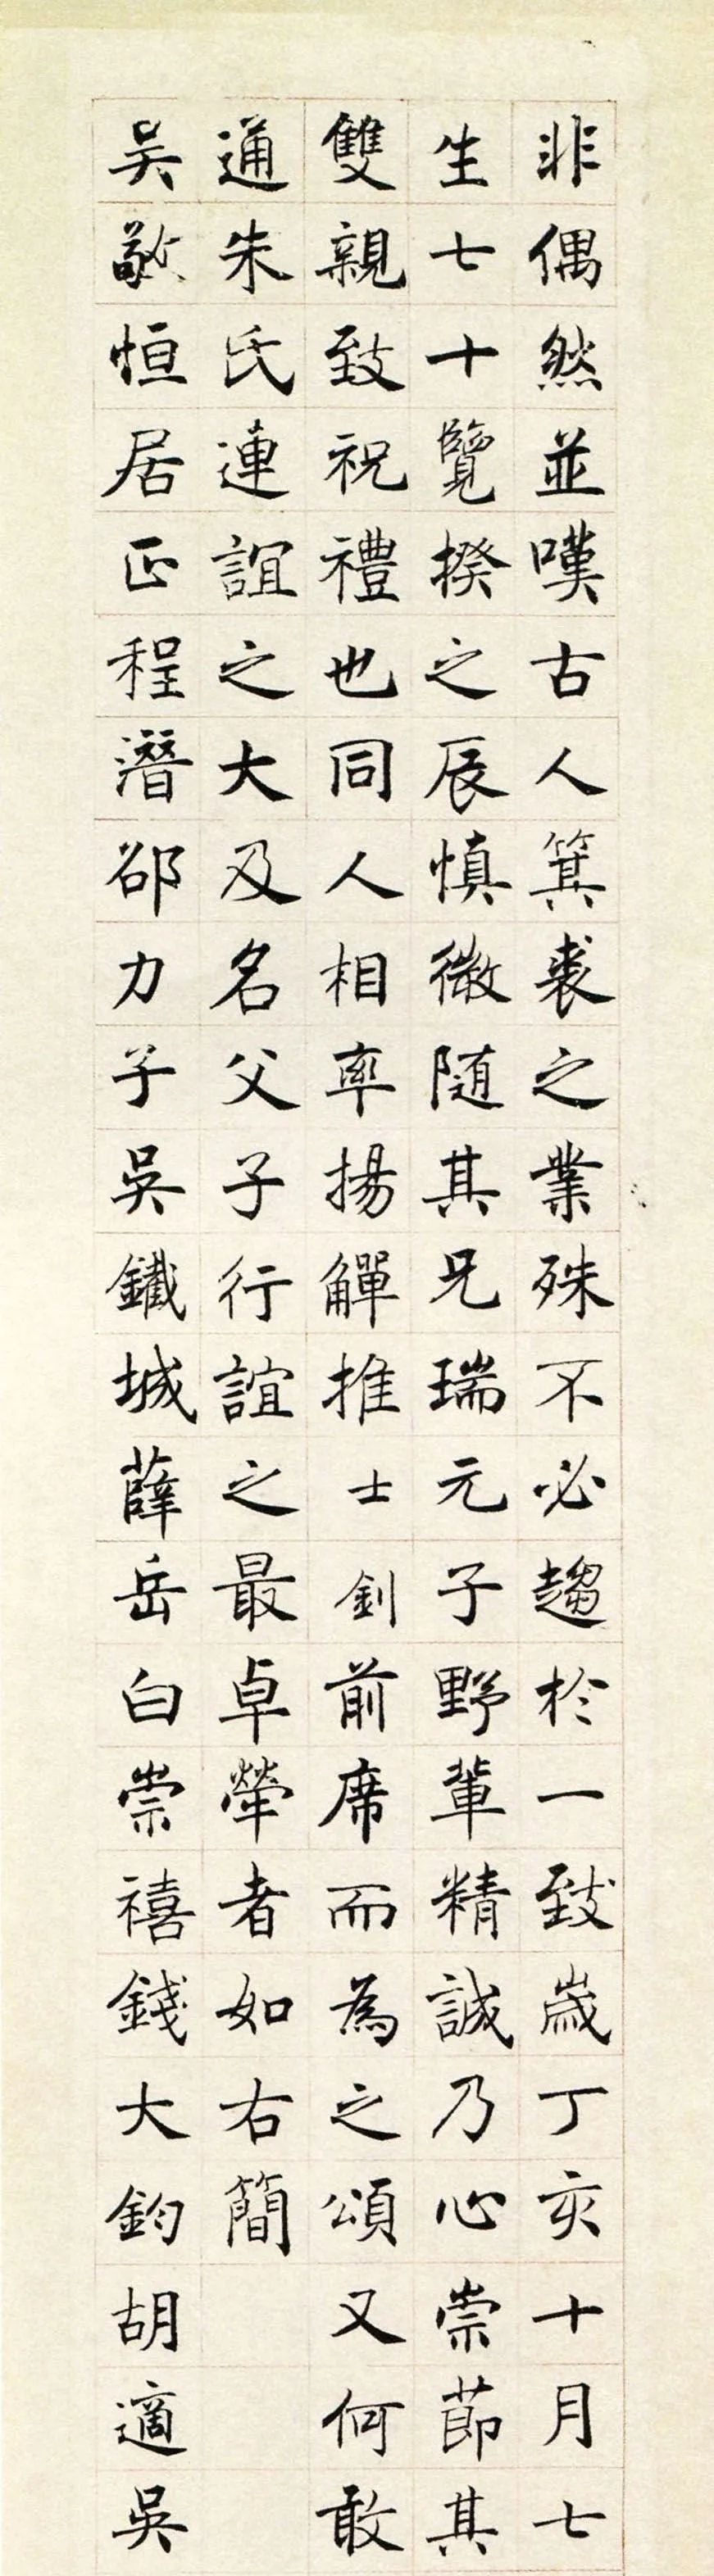 非偶然並嘆古人箕裘之業殊不必趨於一致歲丁亥十月七
生七十覽揆之辰慎微随其兄瑞元子野輩精誠乃心崇節其
雙親致祝禮也同人相率揚觶推士釗前席而為之頌又何敢
通朱氏連誼之大及名父子行誼之最卓犖者如右簡
吴敬恒居正程潛邵力子吳鐵城薛岳白崇禧錢大鈞胡適吳